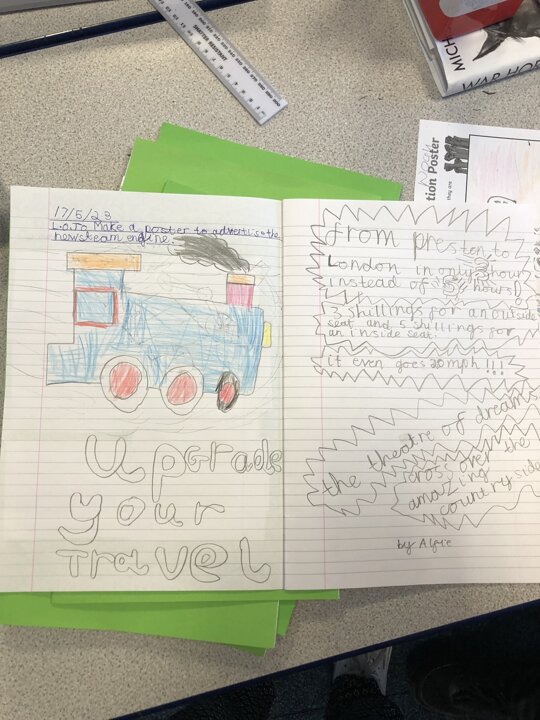 SHATTER RESISTANT
MICH
WAR HOR
tion Poster
they are
17/5/23
L.O.To Make a poster to advertise the
new steam engine.
upgrade
your
Travel
from preston to
London in only hour
instead of hours!
3 shillings for an outside
seat and 5 shillings for
an inside seat.
it even goes 20mph!!!
the theatre of dreams
cross over the
amazing
country side
by Alfie